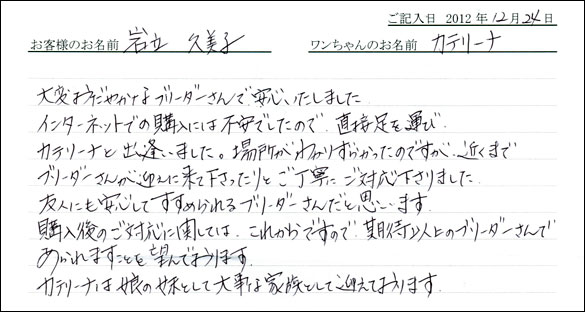 ご記入日 2012年12月24日
お客様のお名前 岩立 久美子 ワンちゃんのお名前 カテリーナ
大変おだやかなブリーダーさんで安心いたしました
インターネットでの購入には不安でしたので、直接足を運び
カテリーナと出逢いました。場所がわかりずらかったのですが、近くまで
ブリーダーさんが迎えに来て下さったりとご丁寧にご対応下さりました
友人にも安心してすすめられるブリーダーさんだと思います
購入後のご対応に関しては、これからですので、期待以上のブリーダーさんで
あられますことを望んでおります
カテリーナは娘の妹として大事な家族として迎えております